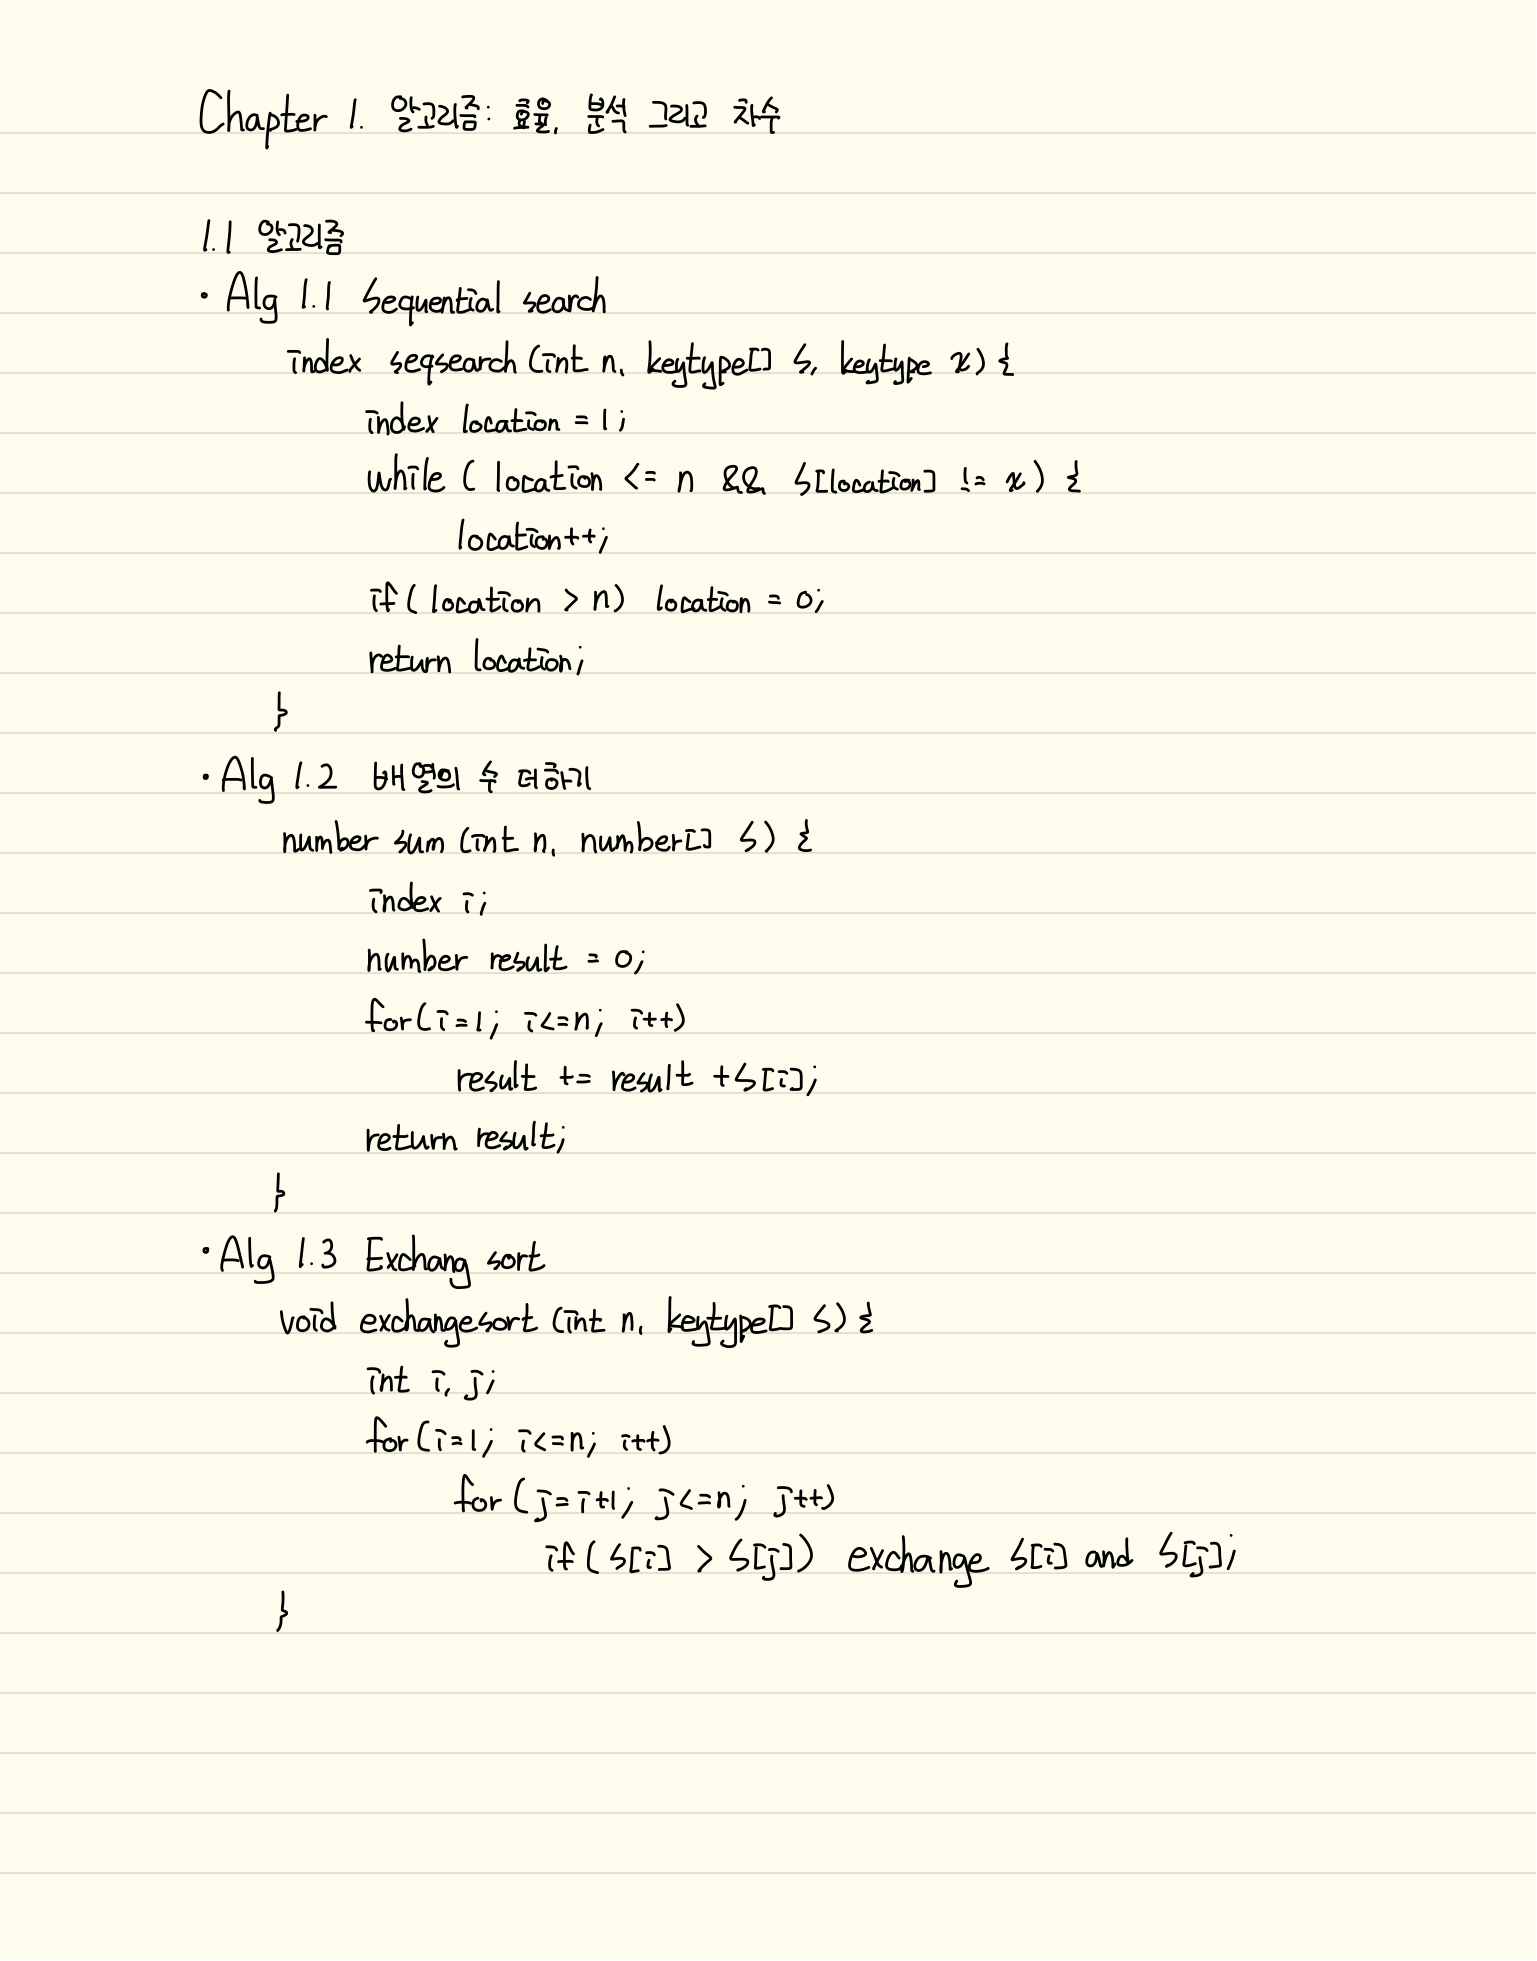 Chapter 1. 알고리즘: 효율, 분석 그리고 차수
1.1 알고리즘
• Alg 1.1 Sequential search
index seqsearch (int n, keytype[] S, keytype x) {
index location = 1;
while ( location <= n && S[location] != x ) {
location++;
if ( location > n) location = 0;
return location;
}
• Alg 1.2 배열의 수 더하기
number sum (int n, number[] S) {
index i;
number result = 0;
for (i=1; i<=n; i++)
result += result + S[i];
return result;
}
• Alg 1.3 Exchang sort
void exchangesort (int n, keytype[] S) {
int i, j;
for (i=1; i<=n; i++)
for (j=i+1; j<=n; j++)
if ( S[i] > S[j]) exchange S[i] and S[j];
}